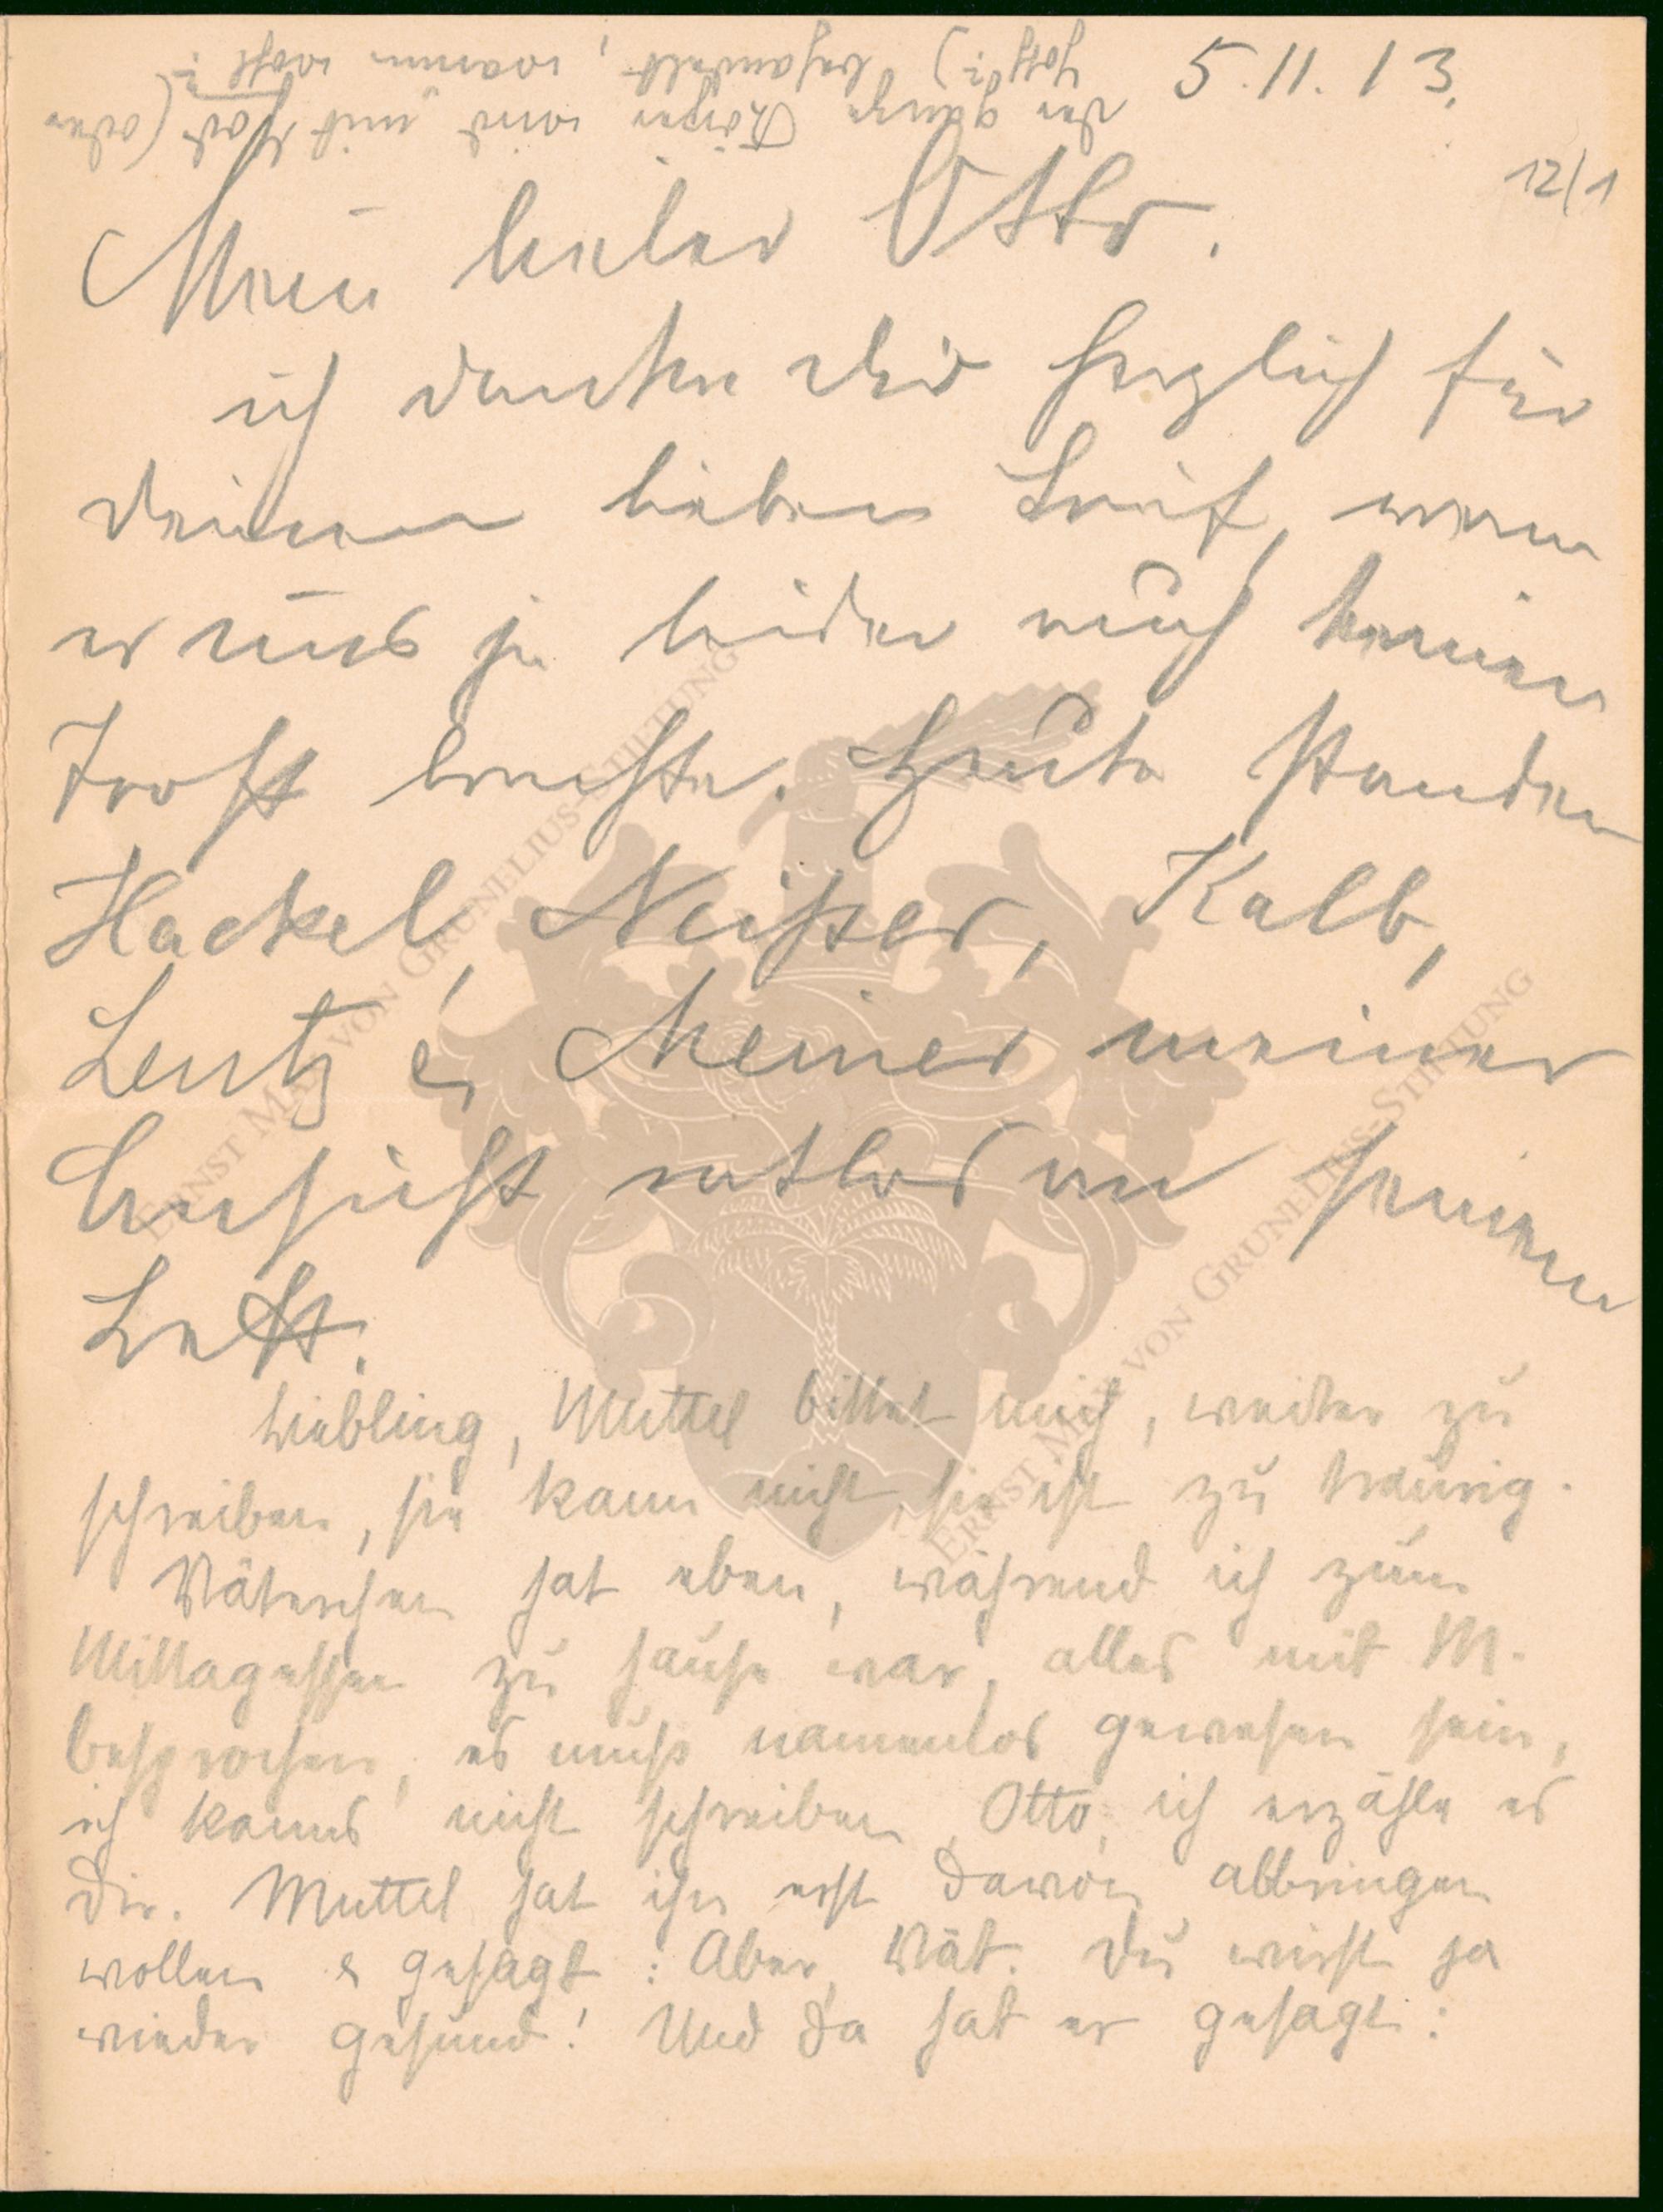 5.11.13.
12/1
der ganze Körper wird mit Jod (oder
Joth?) behandelt, warum wohl?
Mein lieber Otto.
ich danke Dir herzlich für
Deinen lieben Brief, wenn
er uns ja leider auch keinen
Trost brachte. Heute standen
Hackel, Neißer, Kalb,
Lentz & Meiner meiner
Ansicht ratlos an seinem
Bett.
Liebling, Muttel bittet mich, weiter zu
schreiben, sie kann nicht, sie ist zu traurig.
Väterchen hat eben, während ich zum
Mittagessen zu Hause war, alles mit M.
besprochen, es muß namenlos gewesen sein,
ich kanns nicht schreiben, Otto, ich erzähle es
Dir. Muttel hat ihn erst davon abbringen
wollen & gesagt: Aber, Vät. Du wirst ja
wieder gesund! Und da hat er gesagt:
ERNST MAX VON GRUNELIUS-STIFTUNG
ERNST MAX VON GRUNELIUS-STIFTUNG